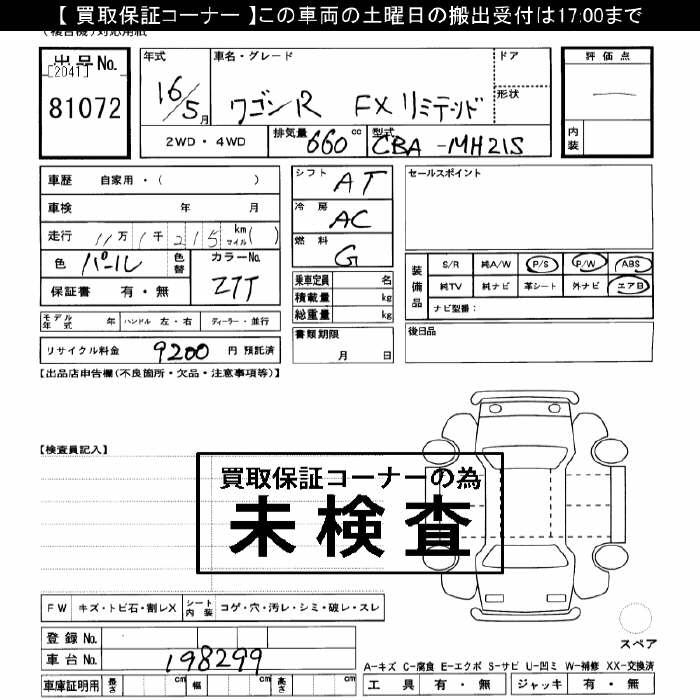 【 買取保証コーナー 】この車両の土曜日の搬出受付は17:00まで
(複合機)対応用紙
出品No. [2041] 81072
年式 16/5月
車名・グレード ワゴンR FXリミテッド
ドア
形状
評価点 —
内装
2WD・4WD
排気量 660 cc
型式 CBA-MH21S
車歴 自家用・( )
車検 年 月
走行 11万1千215 km マイル( )
色 パール 色替
カラーNo. Z7T
保証書 有・無
シフト AT
冷房 AC
燃料 G
乗車定員 名
積載量 kg
総重量 kg
セールスポイント
装備品
S/R 純A/W P/S P/W ABS
純TV 純ナビ 革シート 外ナビ エアB
ナビ型番:
モデル年式 年 ハンドル 左・右 ディーラー・並行
リサイクル料金 9200 円 預託済
書類期限 月 日
後日品
【出品店申告欄(不良箇所・欠品・注意事項等)】
【検査員記入】
買取保証コーナーの為
未検査
FW キズ・トビ石・割レX シート内装 コゲ・穴・汚レ・シミ・破レ・スレ
スペア
登録No.
車台No. 198299
車庫証明用 長さ cm 幅 cm 高さ cm
A-キズ C-腐食 E-エクボ S-サビ U-凹ミ W-補修 XX-交換済
工具 有・無 ジャッキ 有・無